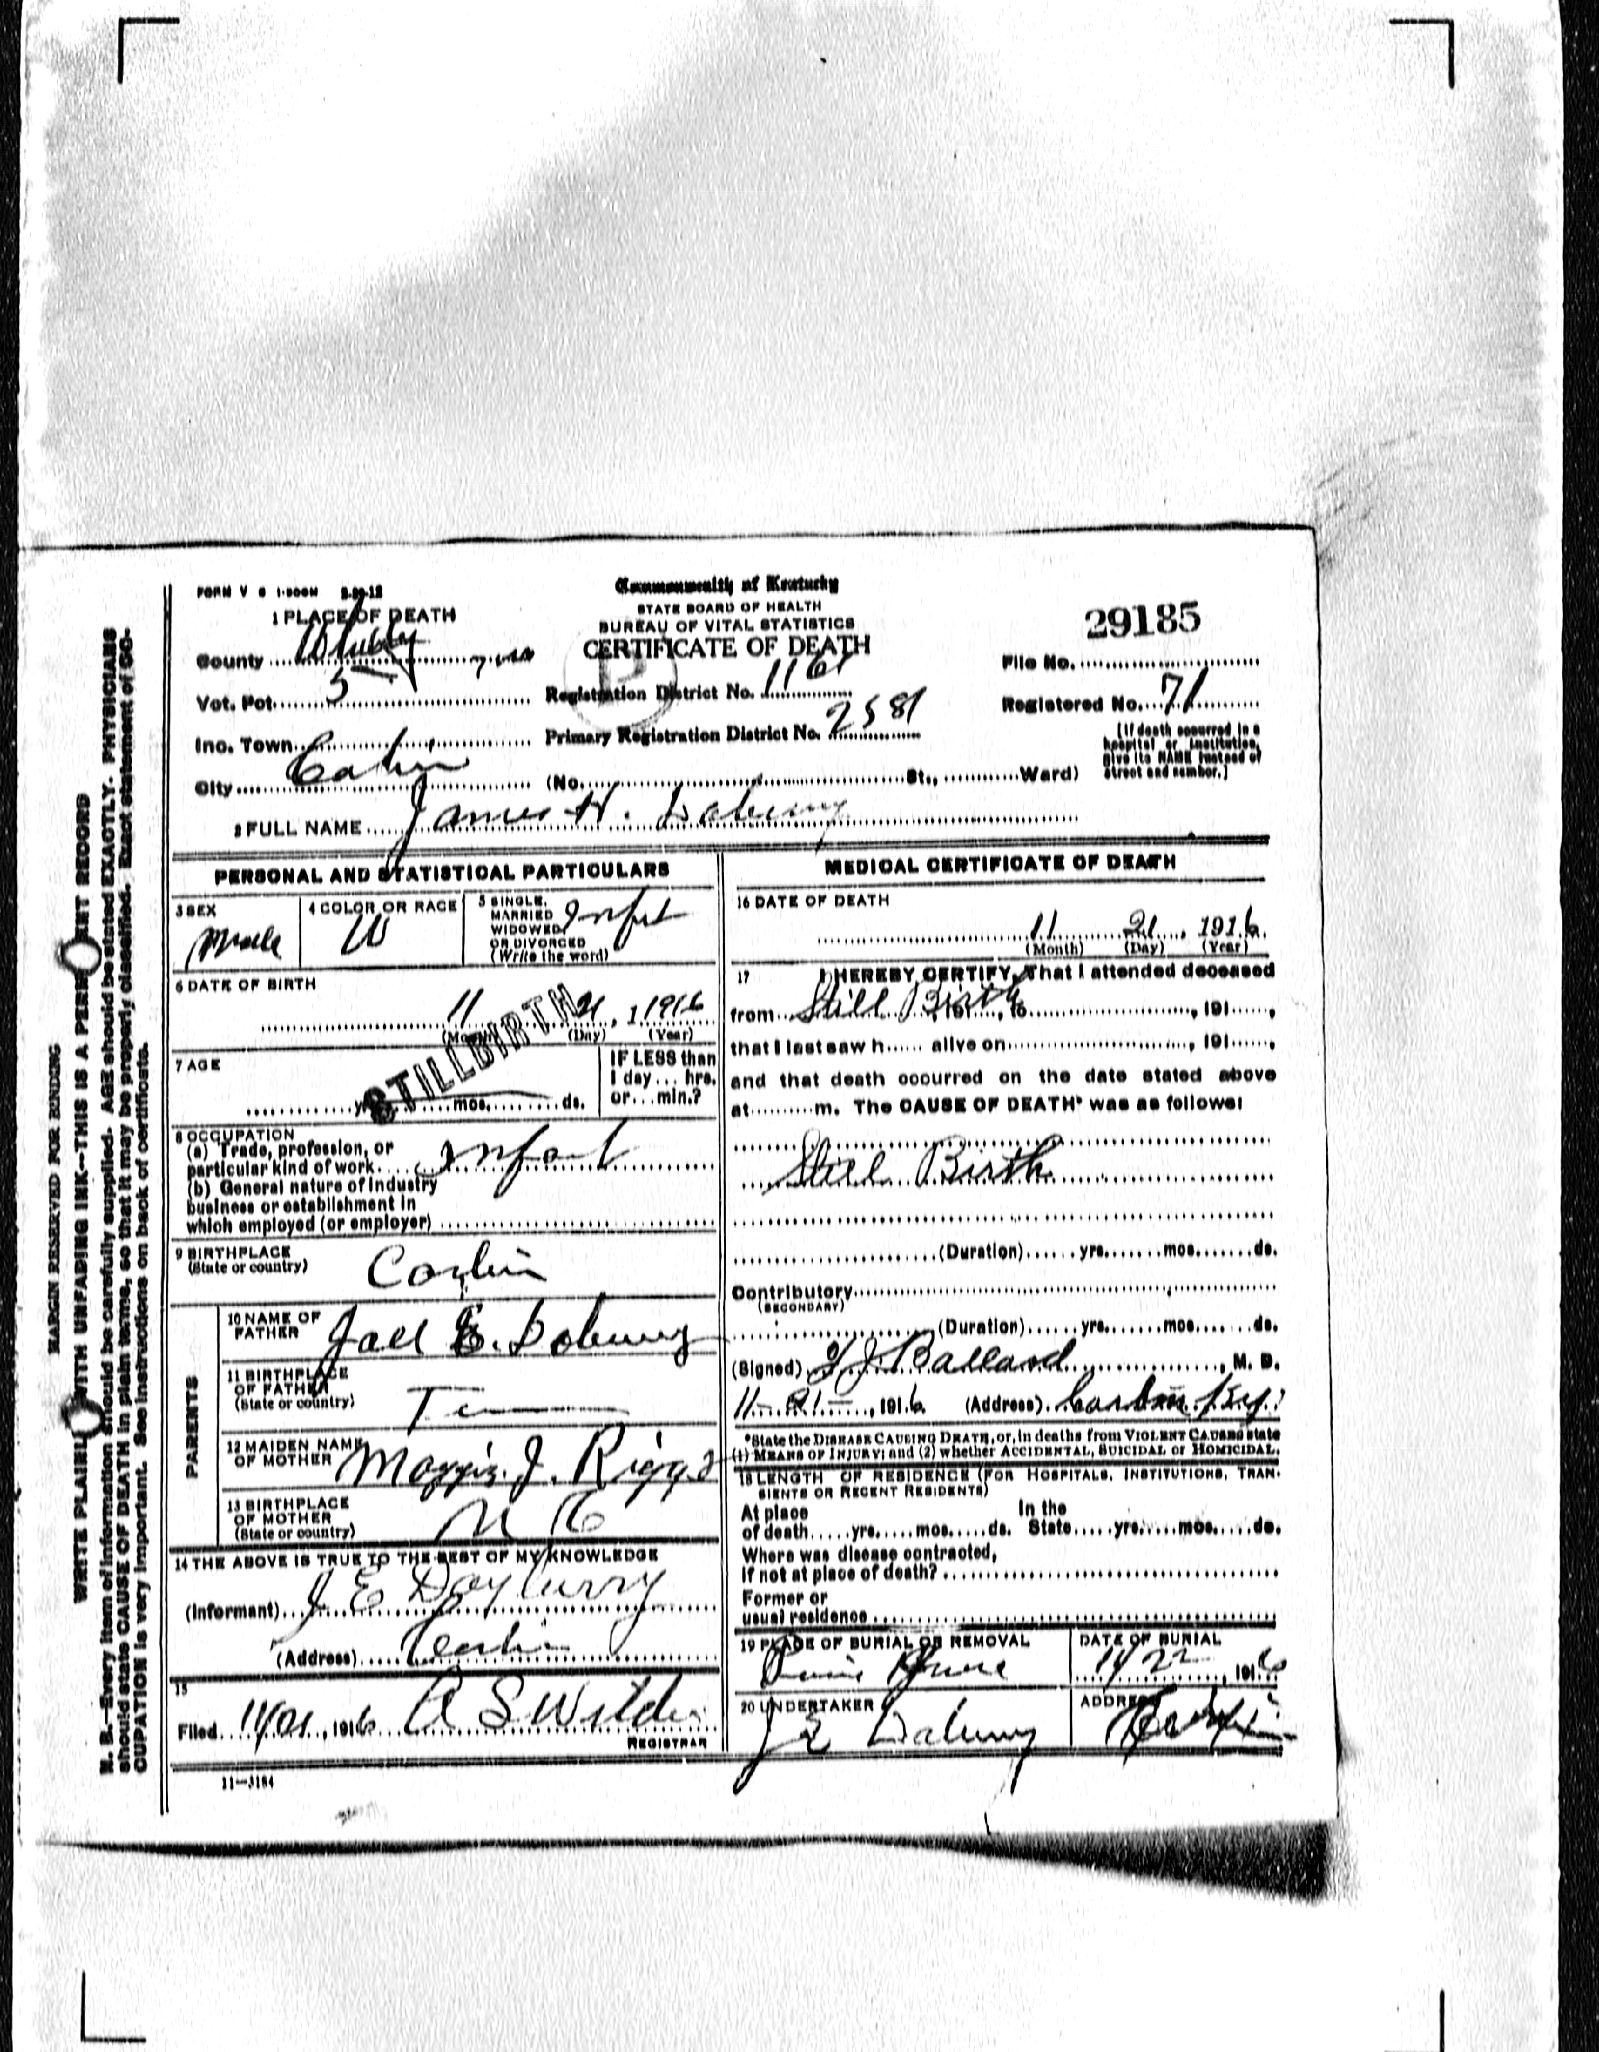 FORM V S 1-500M 8-20-12
Commonwealth of Kentucky
STATE BOARD OF HEALTH
BUREAU OF VITAL STATISTICS
CERTIFICATE OF DEATH
29185
1 PLACE OF DEATH
County Whitley
Vot. Pct. 5
Inc. Town
City Corbin
Registration District No. 1161
Primary Registration District No. 2581
(No. St., Ward)
File No.
Registered No. 71
[If death occurred in a
hospital or institution,
give its NAME instead of
street and number.]
2 FULL NAME James H.
PERSONAL AND STATISTICAL PARTICULARS
3 SEX
Male
4 COLOR OR RACE
W
5 SINGLE,
MARRIED
WIDOWED
OR DIVORCED
(Write the word)
Infnt
6 DATE OF BIRTH
11 21, 1916
(Month) (Day) (Year)
STILLBIRTH
7 AGE
yrs. mos. ds.
IF LESS than
1 day ... hrs.
or ... min.?
8 OCCUPATION
(a) Trade, profession, or
particular kind of work Infant
(b) General nature of industry
business or establishment in
which employed (or employer)
9 BIRTHPLACE
(State or country)
Corbin
PARENTS
10 NAME OF
FATHER
E.
11 BIRTHPLACE
OF FATHER
(State or country)
Tenn
12 MAIDEN NAME
OF MOTHER
Maggie J. Riggs
13 BIRTHPLACE
OF MOTHER
(State or country)
N C
14 THE ABOVE IS TRUE TO THE BEST OF MY KNOWLEDGE
(Informant) J E Dayburry
(Address) Corbin
15
Filed 11/21, 1916 A S Wilder
REGISTRAR
11-3184
MEDICAL CERTIFICATE OF DEATH
16 DATE OF DEATH
11 21, 1916
(Month) (Day) (Year)
17 I HEREBY CERTIFY, That I attended deceased
from Still Birth, 191, to, 191,
that I last saw h alive on, 191,
and that death occurred on the date stated above
at m. The CAUSE OF DEATH* was as follows:
Still Birth
(Duration) yrs. mos. ds.
Contributory
(SECONDARY)
(Duration) yrs. mos. ds.
(Signed) Ballard, M. D.
11-21-, 1916 (Address) Corbin Ky.
*State the DISEASE CAUSING DEATH, or, in deaths from VIOLENT CAUSES state
(1) MEANS OF INJURY; and (2) whether ACCIDENTAL, SUICIDAL or HOMICIDAL.
18 LENGTH OF RESIDENCE (FOR HOSPITALS, INSTITUTIONS, TRAN-
SIENTS OR RECENT RESIDENTS)
At place of death yrs. mos. ds. In the State yrs. mos. ds.
Where was disease contracted,
If not at place of death?
Former or
usual residence
19 PLACE OF BURIAL OR REMOVAL
DATE OF BURIAL
11/22, 1916
20 UNDERTAKER
J E
ADDRESS
Corbin
MARGIN RESERVED FOR BINDING
WRITE PLAINLY WITH UNFADING INK--THIS IS A PERMANENT RECORD
N. B.--Every item of information should be carefully supplied. AGE should be stated EXACTLY. PHYSICIANS
should state CAUSE OF DEATH in plain terms, so that it may be properly classified. Exact statement of OC-
CUPATION is very important. See instructions on back of certificate.